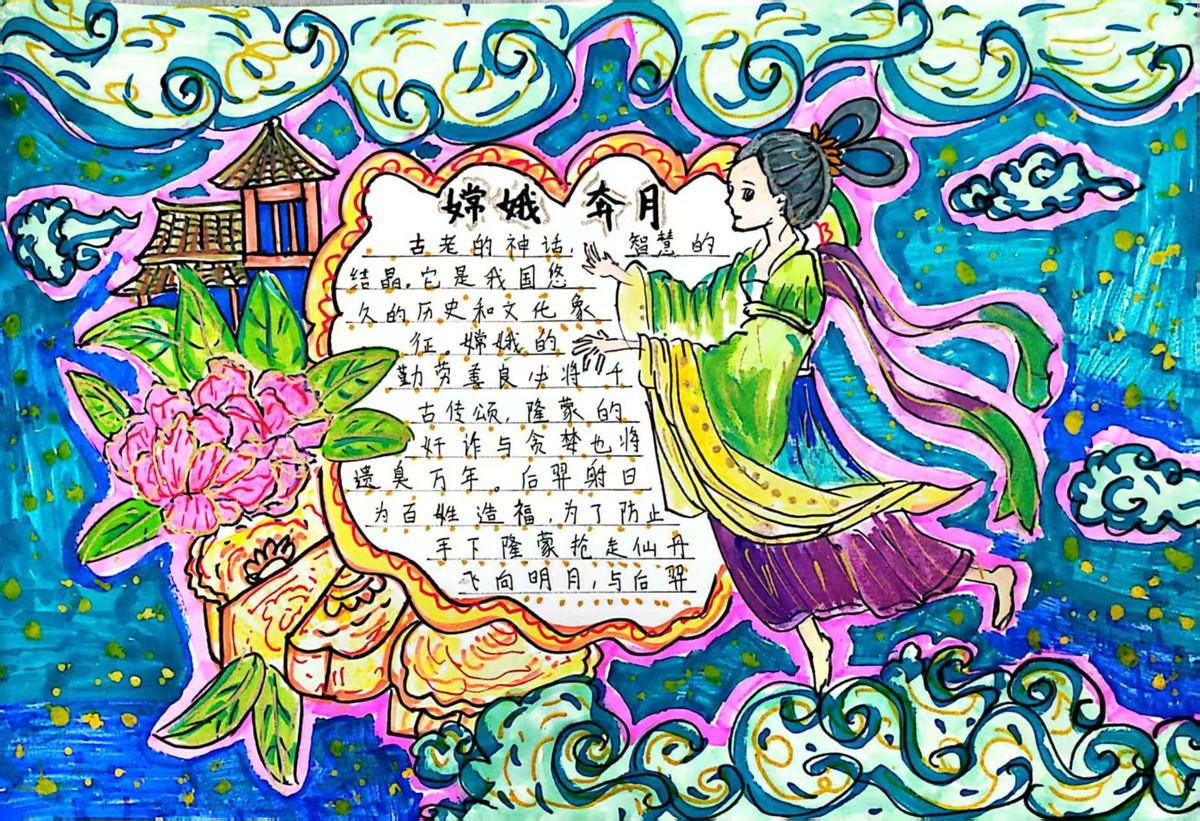 嫦娥 奔月
古老的神话, 智慧的
结晶。它是我国悠
久的历史和文化象
征,嫦娥的
勤劳善良 将千
古传颂,隆蒙的
奸诈与贪婪也将
遗臭万年。后羿射日
为百姓造福,为了防止
手下隆蒙抢走仙丹
飞向明月,与后羿